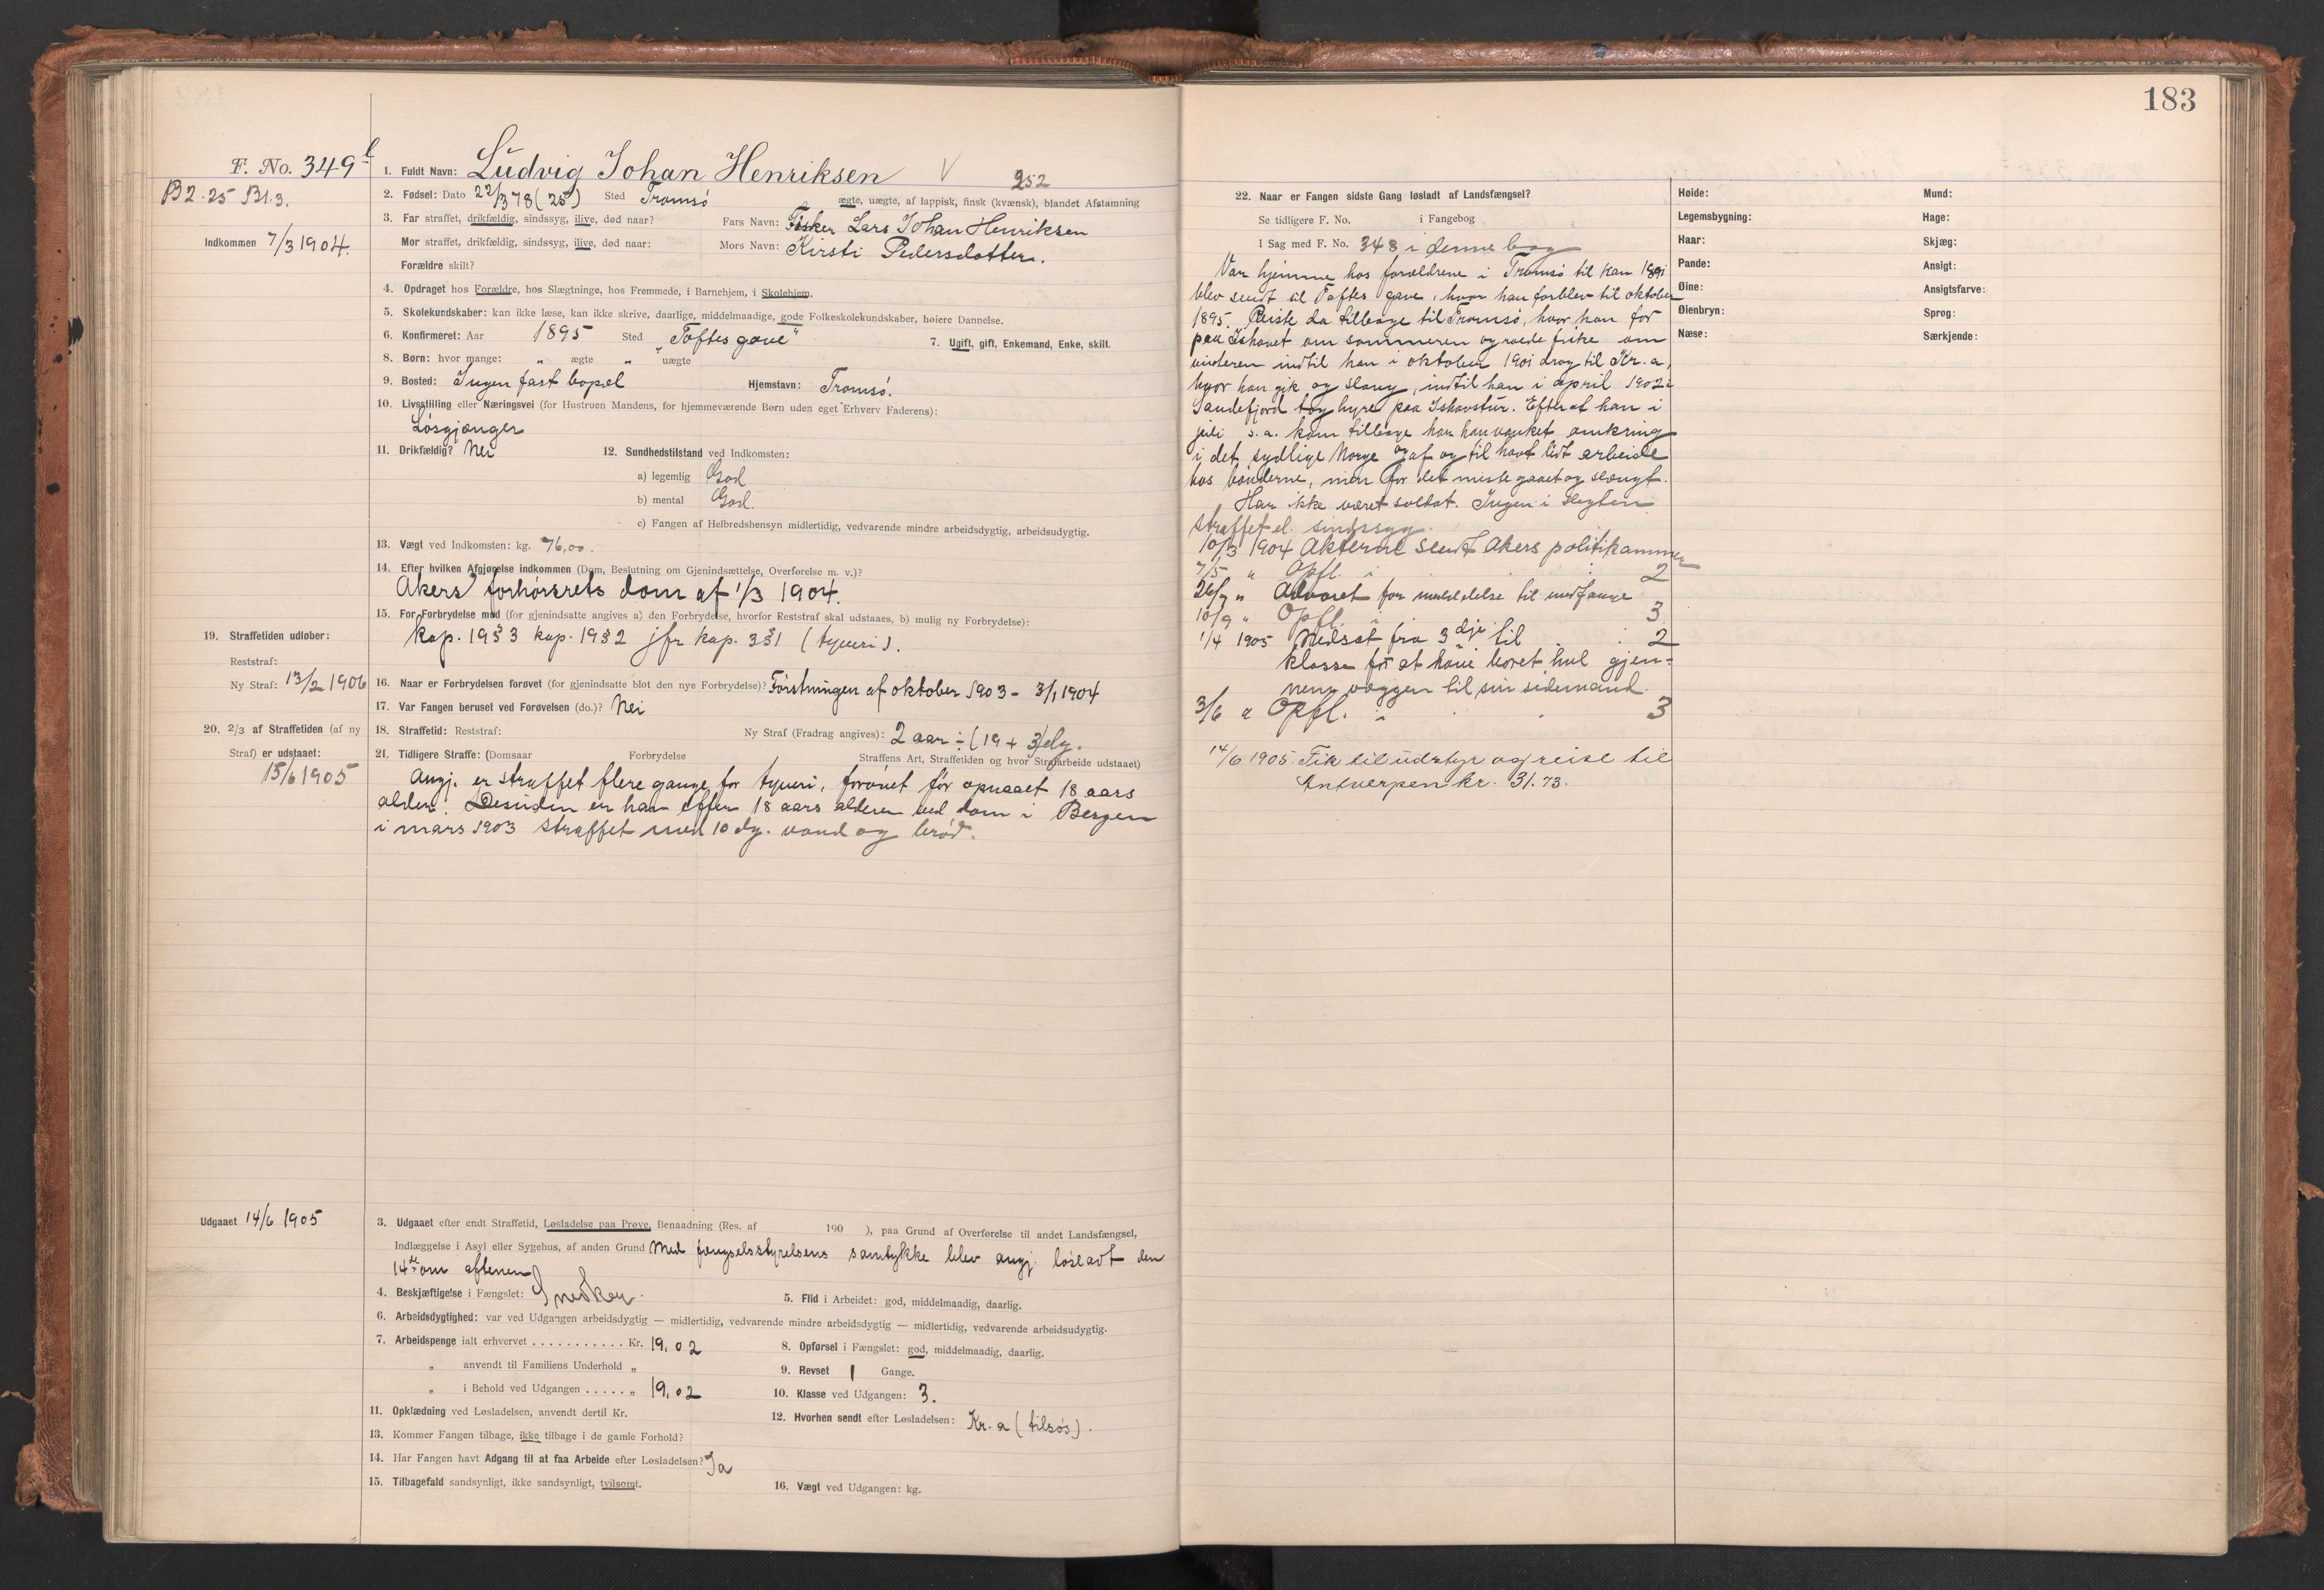 183
F. No. 349
B2. 25 Bl. 3.
Indkommen 7/3 1904.
1. Fuldt Navn: Ludvig Johan Henriksen V
252
2. Fødsel: Dato 22/3 78 (25) Sted Tromsø ægte, uægte, af lappisk, finsk (kvænsk), blandet Afstamning
3. Far straffet, drikfældig, sindssyg, ilive, død naar? Fars Navn: Fisker Lars Johan Henriksen
Mor straffet, drikfældig, sindssyg, ilive, død naar: Mors Navn: Kirsti Pedersdatter.
Forældre skilt?
4. Opdraget hos Forældre, hos Slægtninge, hos Fremmede, i Barnehjem, i Skolehjem.
5. Skolekundskaber: kan ikke læse, kan ikke skrive, daarlige, middelmaadige, gode Folkeskolekundskaber, høiere Dannelse.
6. Konfirmeret: Aar 1895 Sted „Toftes gave“ 7. Ugift, gift, Enkemand, Enke, skilt.
8. Børn: hvor mange: „ ægte „ uægte
9. Bosted: Ingen fast bopæl Hjemstavn: Tromsø.
10. Livsstilling eller Næringsvei (for Hustruen Mandens, for hjemmeværende Børn uden eget Erhverv Faderens):
Løsgjænger
11. Drikfældig? Nei 12. Sundhedstilstand ved Indkomsten:
a) legemlig God
b) mental God.
c) Fangen af Helbredshensyn midlertidig, vedvarende mindre arbeidsdygtig, arbeidsudygtig.
13. Vægt ved Indkomsten: kg. 76,00.
14. Efter hvilken Afgjørelse indkommen (Dom, Beslutning om Gjenindsættelse, Overførelse m. v.)?
Akers forhørsrets dom af 1/3 1904.
15. For Forbrydelse mod (for gjenindsatte angives a) den Forbrydelse, hvorfor Reststraf skal udstaaes, b) mulig ny Forbrydelse):
Kap. 19 § 3 kap. 19 § 2 jfr kap. 3 § 1 (tyveri).
19. Straffetiden udløber:
Reststraf:
Ny Straf: 13/2 1906
16. Naar er Forbrydelsen forøvet (for gjenindsatte blot den nye Forbrydelse)? Førstningen af oktober 1903 - 3/1 1904
17. Var Fangen beruset ved Forøvelsen (do.)? Nei
20. 2/3 af Straffetiden (af ny Straf) er udstaaet:
15/6 1905
18. Straffetid: Reststraf: Ny Straf (Fradrag angives): 2 aar ÷ (19 + 3) dg.
21. Tidligere Straffe: (Domsaar Forbrydelse Straffens Art, Straffetiden og hvor Strafarbeide udstaaet)
Angj. er straffet flere gange for tyveri, forøvet før opnaaet 18 aars
alder. Desuden er han efter 18 aars alderen ved dom i Bergen
i mars 1903 straffet med 10 dg. vand og brød.
Udgaaet 14/6 1905
3. Udgaaet efter endt Straffetid, Løsladelse paa Prøve, Benaadning (Res. af 190 ), paa Grund af Overførelse til andet Landsfængsel,
Indlæggelse i Asyl eller Sygehus, af anden Grund Med fængselsstyrelsens samtykke blev angj. løsladt den
14de om aftenen
4. Beskjæftigelse i Fængslet: Snedker. 5. Flid i Arbeidet: god, middelmaadig, daarlig.
6. Arbeidsdygtighed: var ved Udgangen arbeidsdygtig — midlertidig, vedvarende mindre arbeidsdygtig — midlertidig, vedvarende arbeidsudygtig.
7. Arbeidspenge ialt erhvervet . . . . . . . . . . . Kr. 19,02 8. Opførsel i Fængslet: god, middelmaadig, daarlig.
„ anvendt til Familiens Underhold „ 9. Revset 1 Gange.
„ i Behold ved Udgangen . . . . . „ 19,02 10. Klasse ved Udgangen: 3.
11. Opklædning ved Løsladelsen, anvendt dertil Kr. 12. Hvorhen sendt efter Løsladelsen: Kr. a (tilsøs).
13. Kommer Fangen tilbage, ikke tilbage i de gamle Forhold?
14. Har Fangen havt Adgang til at faa Arbeide efter Løsladelsen? Ja
15. Tilbagefald sandsynligt, ikke sandsynligt, tvilsomt. 16. Vægt ved Udgangen: kg.
22. Naar er Fangen sidste Gang løsladt af Landsfængsel?
Se tidligere F. No. i Fangebog
I Sag med F. No. 348 i denne bog
Var hjemme hos forældrene i Tromsø til han 1891
blev sendt til Toftes gave, hvor han forblev til oktober
1895. Reiste da tilbage til Tromsø, hvor han for
paa Ishavet om sommeren og roede fiske om
vinteren indtil han i oktober 1901 drog til Kr. a,
hvor han gik og slang, indtil han i april 1902 i
Sandefjord tog hyre paa Ishavstur. Efterat han i
juli s. a. kom tilbage har han vanket omkring
i det sydlige Norge og af og til havt lidt arbeide
hos bønderne, men for det meste gaaet og slængt.
Har ikke været soldat. Ingen i slægten
straffet el. sindssyg.
10/3 1904 Akterne sendt Akers politikammer
7/5 „ Opfl. i 2
26/7 „ Advaret for meddelelse til medfange
10/9 „ Opfl. i 3
1/4 1905 Nedsat fra 3dje til 2
klasse for at have boret hul gjen-
nem væggen til sin sidemand.
3/6 „ Opfl. i 3
14/6 1905. Fik til udstyr og reise til
Antwerpen kr. 31.73.
Høide:
Legemsbygning:
Haar:
Pande:
Øine:
Øienbryn:
Næse:
Mund:
Hage:
Skjæg:
Ansigt:
Ansigtsfarve:
Sprog:
Særkjende: